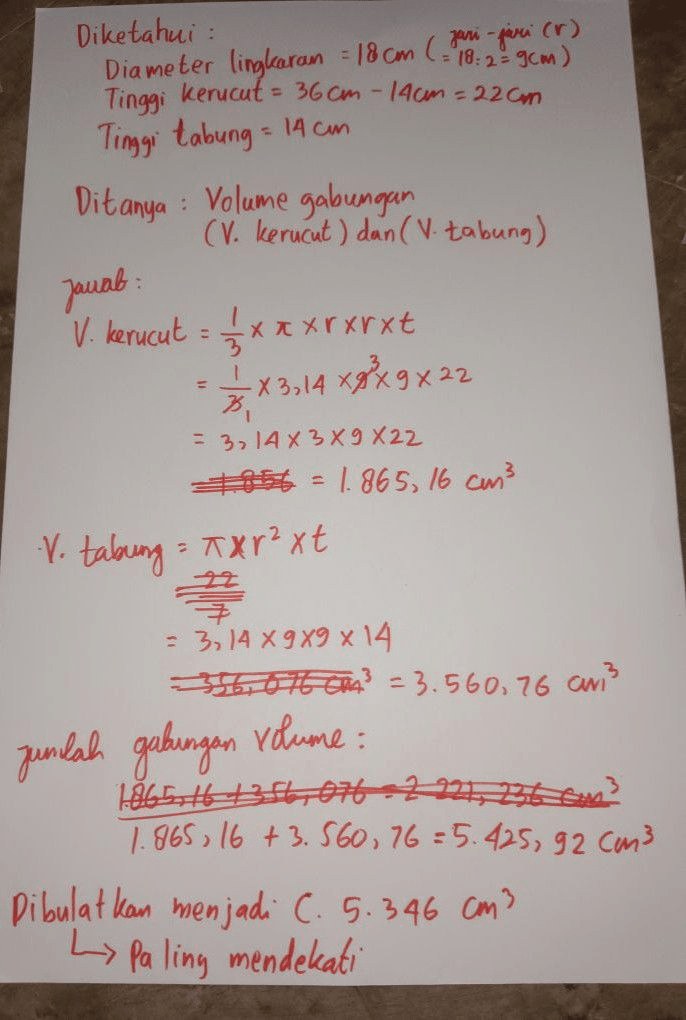 Diketahui :
Diameter lingkaran = 18 cm ( jari-jari (r) = 18 : 2 = 9cm )
Tinggi kerucut = 36 cm - 14 cm = 22 cm
Tinggi tabung = 14 cm
Ditanya : Volume gabungan
(V. kerucut) dan (V. tabung)
Jawab :
V. kerucut = 1/3 x π x r x r x t
= 1/3 1 x 3,14 x 9 3 x 9 x 22
= 3,14 x 3 x 9 x 22
= 1.856 = 1.865,16 cm³
V. tabung = π x r² x t
= 22/7
= 3,14 x 9 x 9 x 14
= 356,076 cm³ = 3.560,76 cm³
Jumlah gabungan volume :
1.865,16 + 356,076 = 2.221,236 cm³
1.865,16 + 3.560,76 = 5.425,92 cm³
Dibulatkan menjadi C. 5.346 cm³
↳ Paling mendekati